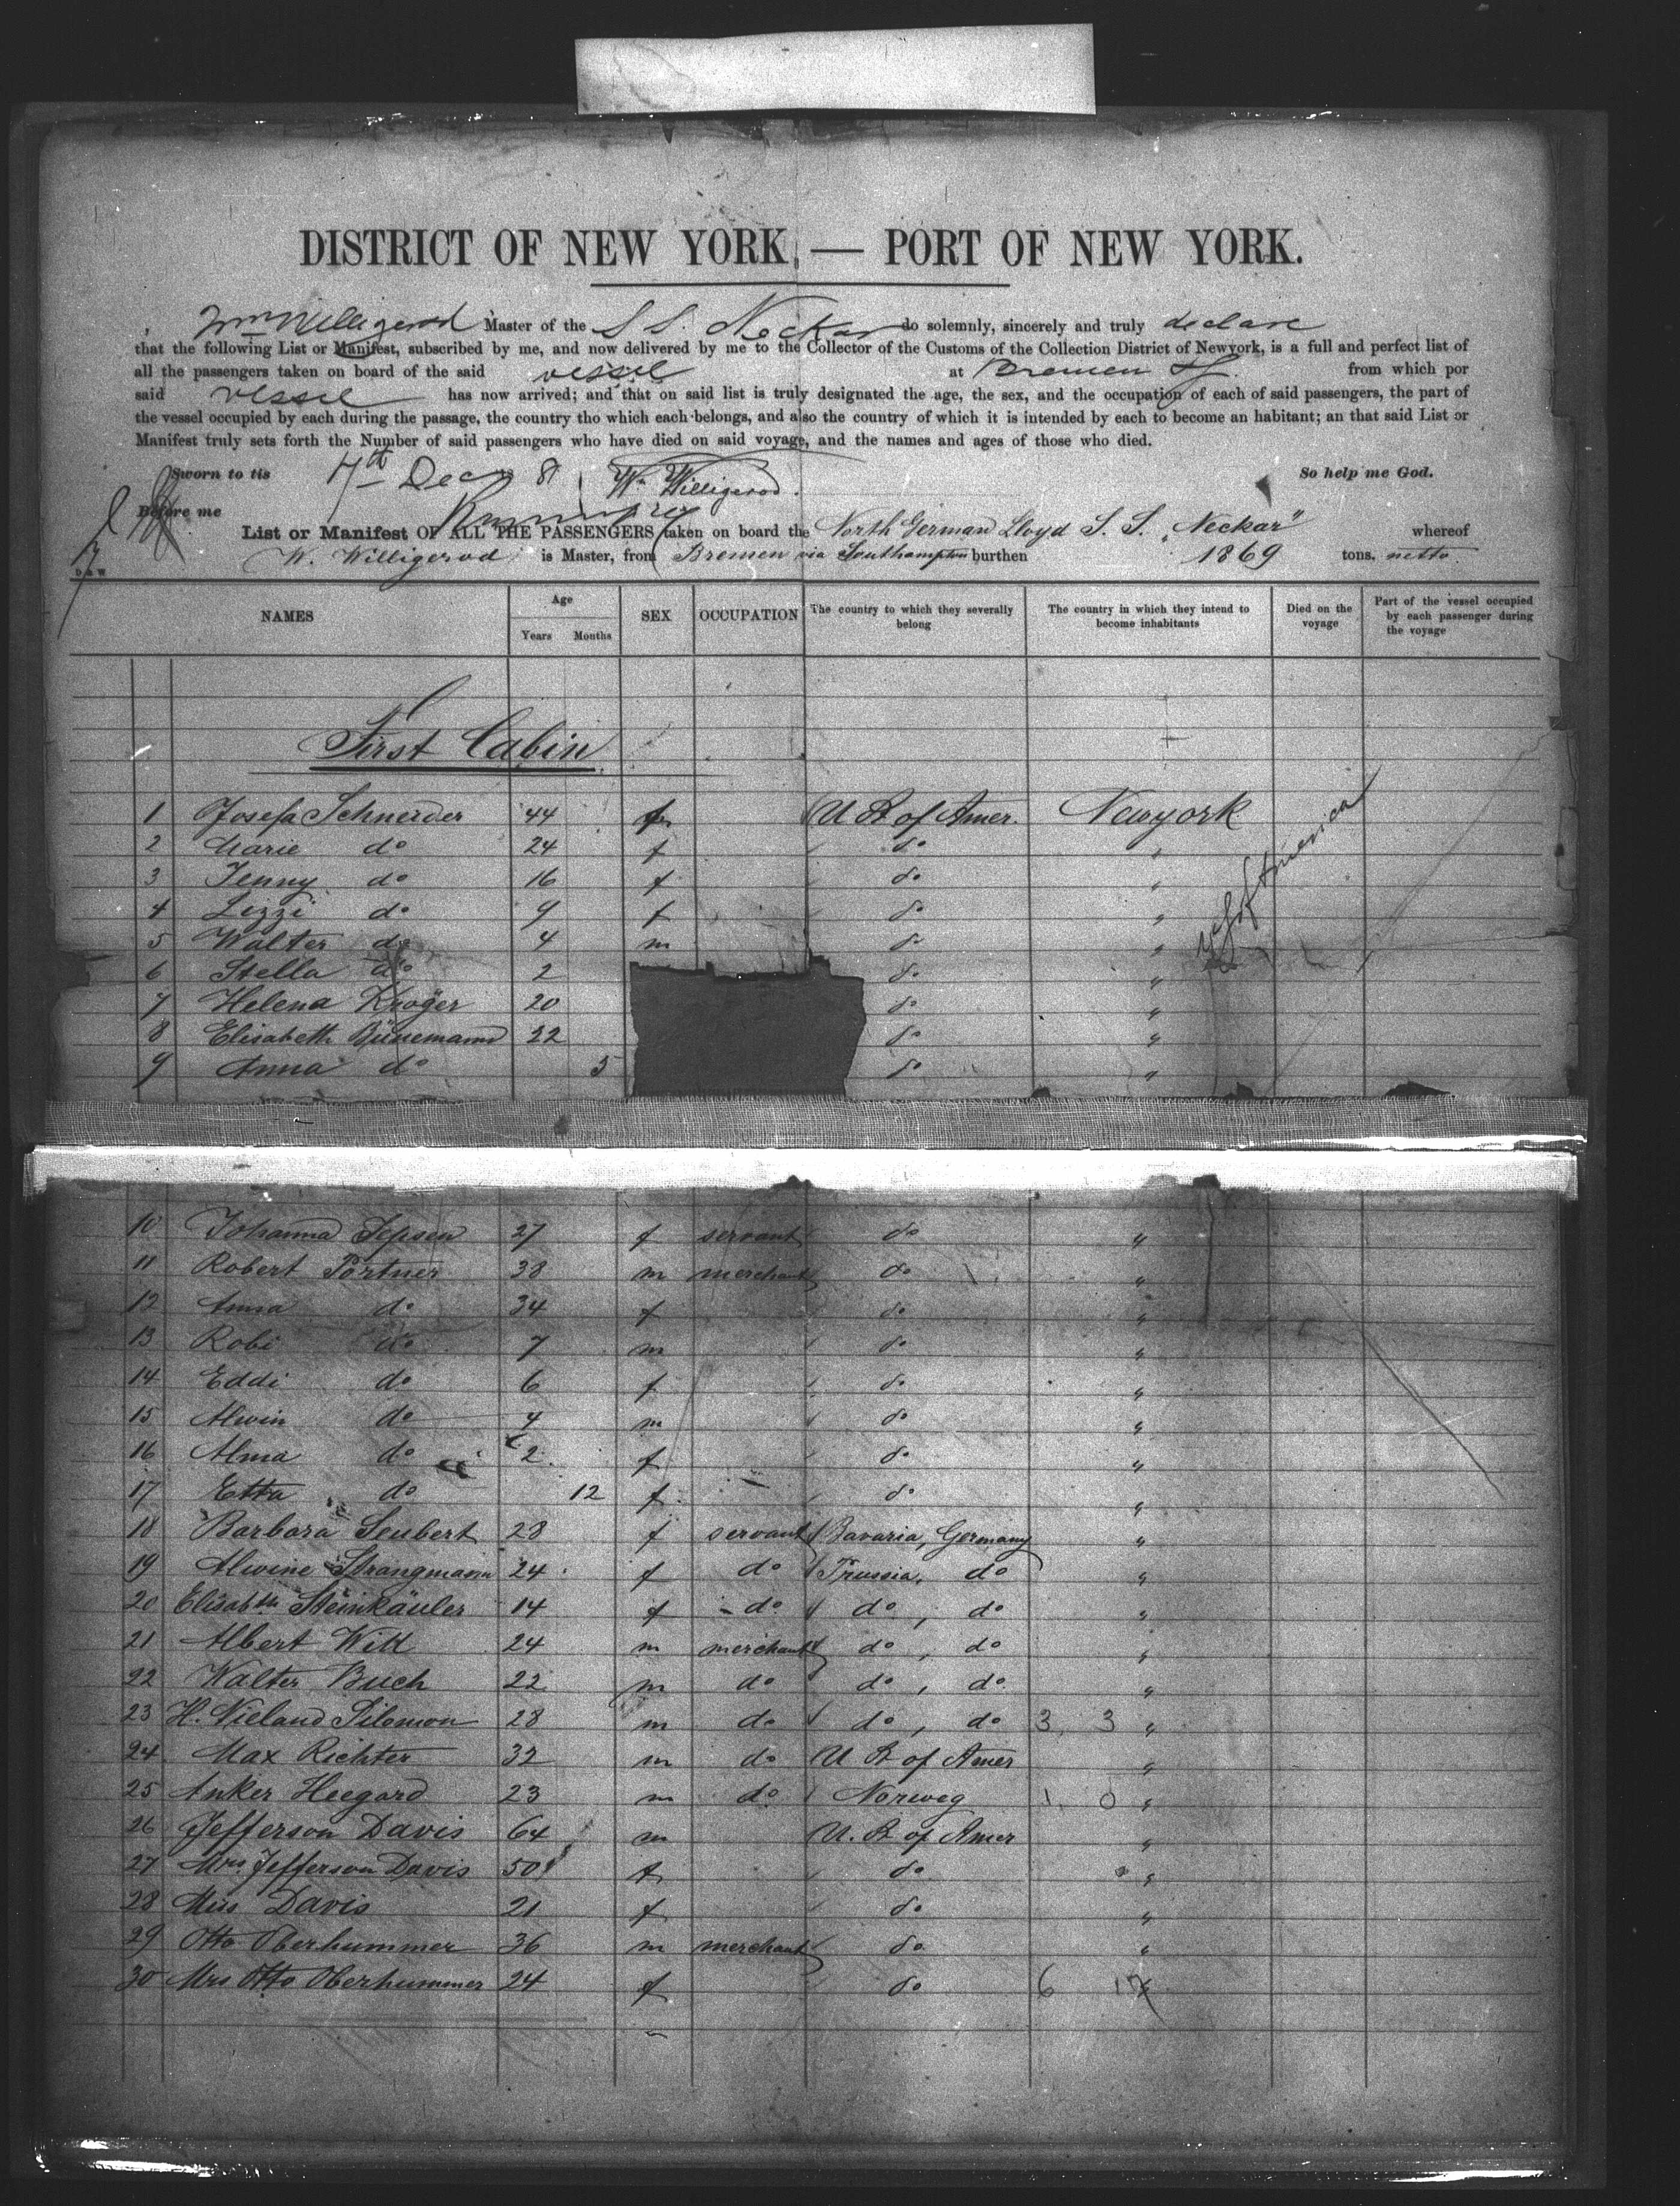 DISTRICT OF NEW YORK, — PORT OF NEW YORK.
Wm Willigerod Master of the S S. Neckar do solemnly, sincerely and truly declare
that the following List or Manifest, subscribed by me, and now delivered by me to the Collector of the Customs of the Collection District of Newyork, is a full and perfect list of
all the passengers taken on board of the said vessel at Bremen from which por
said vessel has now arrived; and that on said list is truly designated the age, the sex, and the occupation of each of said passengers, the part of
the vessel occupied by each during the passage, the country tho which each belongs, and also the country of which it is intended by each to become an habitant; an that said List or
Manifest truly sets forth the Number of said passengers who have died on said voyage, and the names and ages of those who died.
Sworn to tis 7th Dec 81 W. Willigerod. So help me God.
Before me
List or Manifest OF ALL THE PASSENGERS taken on board the North German Lloyd S. S. "Neckar" whereof
W. Willigerod is Master, from Bremen via Southampton burthen 1869 tons. netto.
NAMES Age Years Months SEX OCCUPATION The country to which they severally belong The country in which they intend to become inhabitants Died on the voyage Part of the vessel occupied by each passenger during the voyage
First Cabin
1 Josefa Schneider 44 f U S of Amer. Newyork
2 Marie do 24 f do "
3 Jenny do 16 f do "
4 Lizzi do 9 f do "
5 Walter do 4 m do "
6 Stella do 2 do "
7 Helena Kröger 20 do "
8 Elisabeth Bünemann 22 do "
9 Anna do 5 do "
U S of America
10 Johanna Jepsen 27 f servant do "
11 Robert Portner 38 m merchant do "
12 Anna do 34 f do "
13 Robi do 7 m do "
14 Eddi do 6 f do "
15 Alwin do 4 m do "
16 Alma do 2 f do "
17 Etta do 12 f do "
18 Barbara Seubert 28 f servant Bavaria, Germany "
19 Alwine Strangmann 24 f do Prussia, do "
20 Elisabth Steinkäuler 14 f do do, do "
21 Albert Witt 24 m merchant do, do "
22 Walter Buch 22 m do do, do "
23 H. Nieland Silomon 28 m do do, do 3. 3 "
24 Max Richter 32 m do U S of Amer "
25 Anker Heegard 23 m do Norweg 1. 0 "
26 Jefferson Davis 64 m U. S. of Amer "
27 Mrs Jefferson Davis 50 f do "
28 Miss Davis 21 f do "
29 Otto Oberhummer 36 m merchant do "
30 Mrs Otto Oberhummer 24 f do 6 17